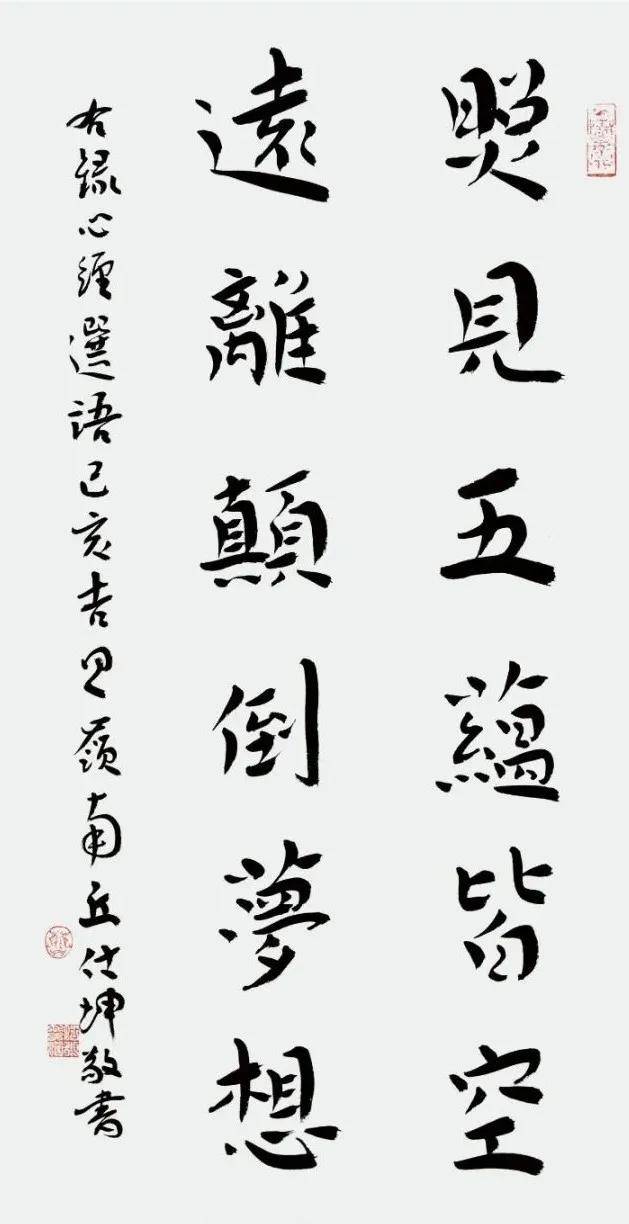 照見五蘊皆空
遠離顛倒夢想
右録心經選語己亥吉日嶺南丘仕坤敬書